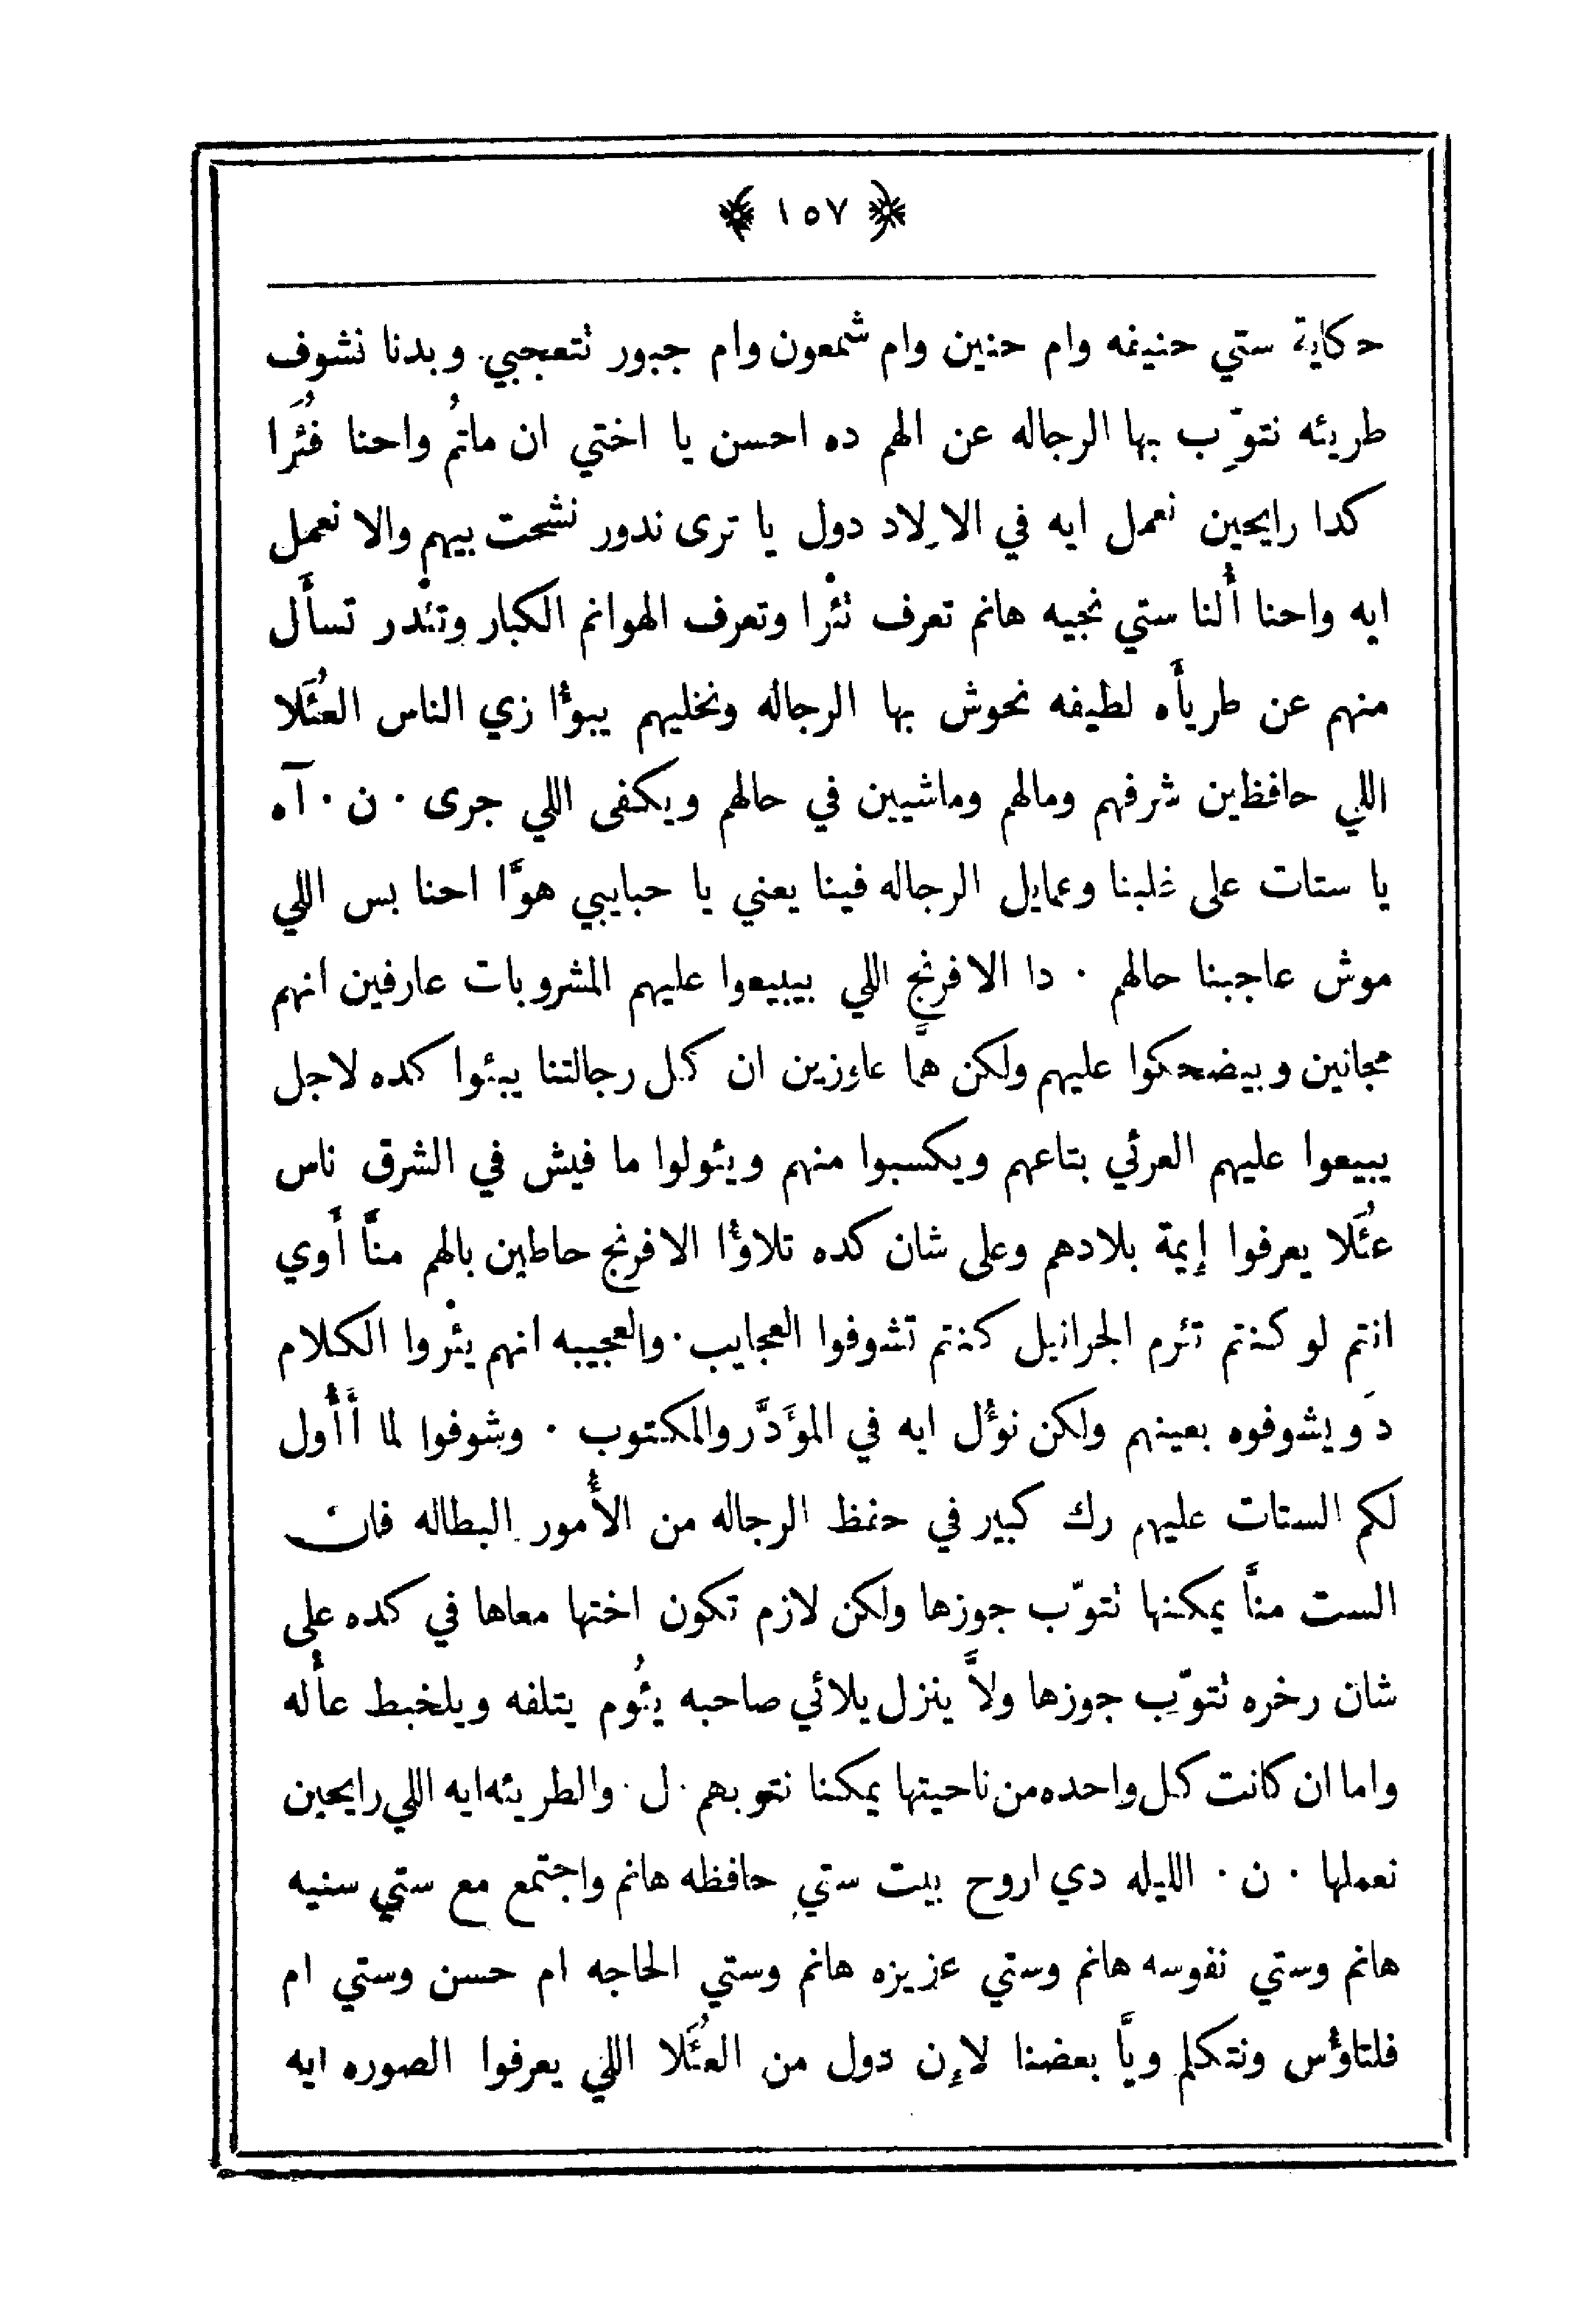 ﴿ ١٥٧ ﴾
حكاية ستي حنيفه وام حنين وام شمعون وام جبور تتعجبي. وبدنا نشوف
طريئه نتوِّب بها الرجاله عن الهم ده احسن يا اختي ان ماتُم واحنا فُئَرا
كدا رايحين نعمل ايه في الاولاد دول يا ترى ندور نشحت بيهم والا نعمل
ايه واحنا أُلنا ستي نجيه هانم تعرف تئْرا وتعرف الهوانم الكبار وتئْدر تسأَل
منهم عن طريأَه لطيفه نحوش بها الرجاله ونخليهم يبوأُا زي الناس العُئَلا
اللي حافظين شرفهم ومالهم وماشيين في حالهم ويكفى اللي جرى ٠ ن ٠ آه
يا ستات على غلبنا وعمايل الرجاله فينا يعني يا حبايبي هوَّا احنا بس اللي
موش عاجبنا حالهم ٠ دا الافرنج اللي بيبيعوا عليهم المشروبات عارفين انهم
مجانين وبيضحكوا عليهم ولكن همَّا عاوزين ان كل رجالتنا يبئوا كده لاجل
يبيعوا عليهم العرئي بتاعهم ويكسبوا منهم ويئولوا ما فيش في الشرق ناس
عُئَلا يعرفوا إيمة بلادهم وعلى شان كده تلاؤُا الافرنج حاطين بالهم منَّا أَوي
انتم لو كنتم تئرم الجرانيل كنتم تشوفوا العجايب ٠ والعجيبه انهم يئْروا الكلام
دَ ويشوفوه بعينهم ولكن نؤُل ايه في المؤَدَّر والمكتوب ٠ وشوفوا لما أَأُول
لكم الستات عليهم رك كبير في حفظ الرجاله من الأُمور البطاله فان
الست منَّا يمكنها تتوّب جوزها ولكن لازم تكون اختها معاها في كده على
شان رخره تتوّب جوزها ولاَّ ينزل يلائي صاحبه يئُوم يتلفه ويلخبط عأْله
واما ان كانت كل واحده من ناحيتها يمكنا نتوبهم ٠ ل ٠ والطريئه ايه اللي رايحين
نعملها ٠ ن ٠ الليله دي اروح بيت ستي حافظه هانم واجتمع مع ستي سنيه
هانم وستي نفوسه هانم وستي عزيزه هانم وستي الحاجه ام حسن وستي ام
فلتاؤُس ونتكلم ويَّا بعضنا لإن دول من العُئَلا اللي يعرفوا الصوره ايه